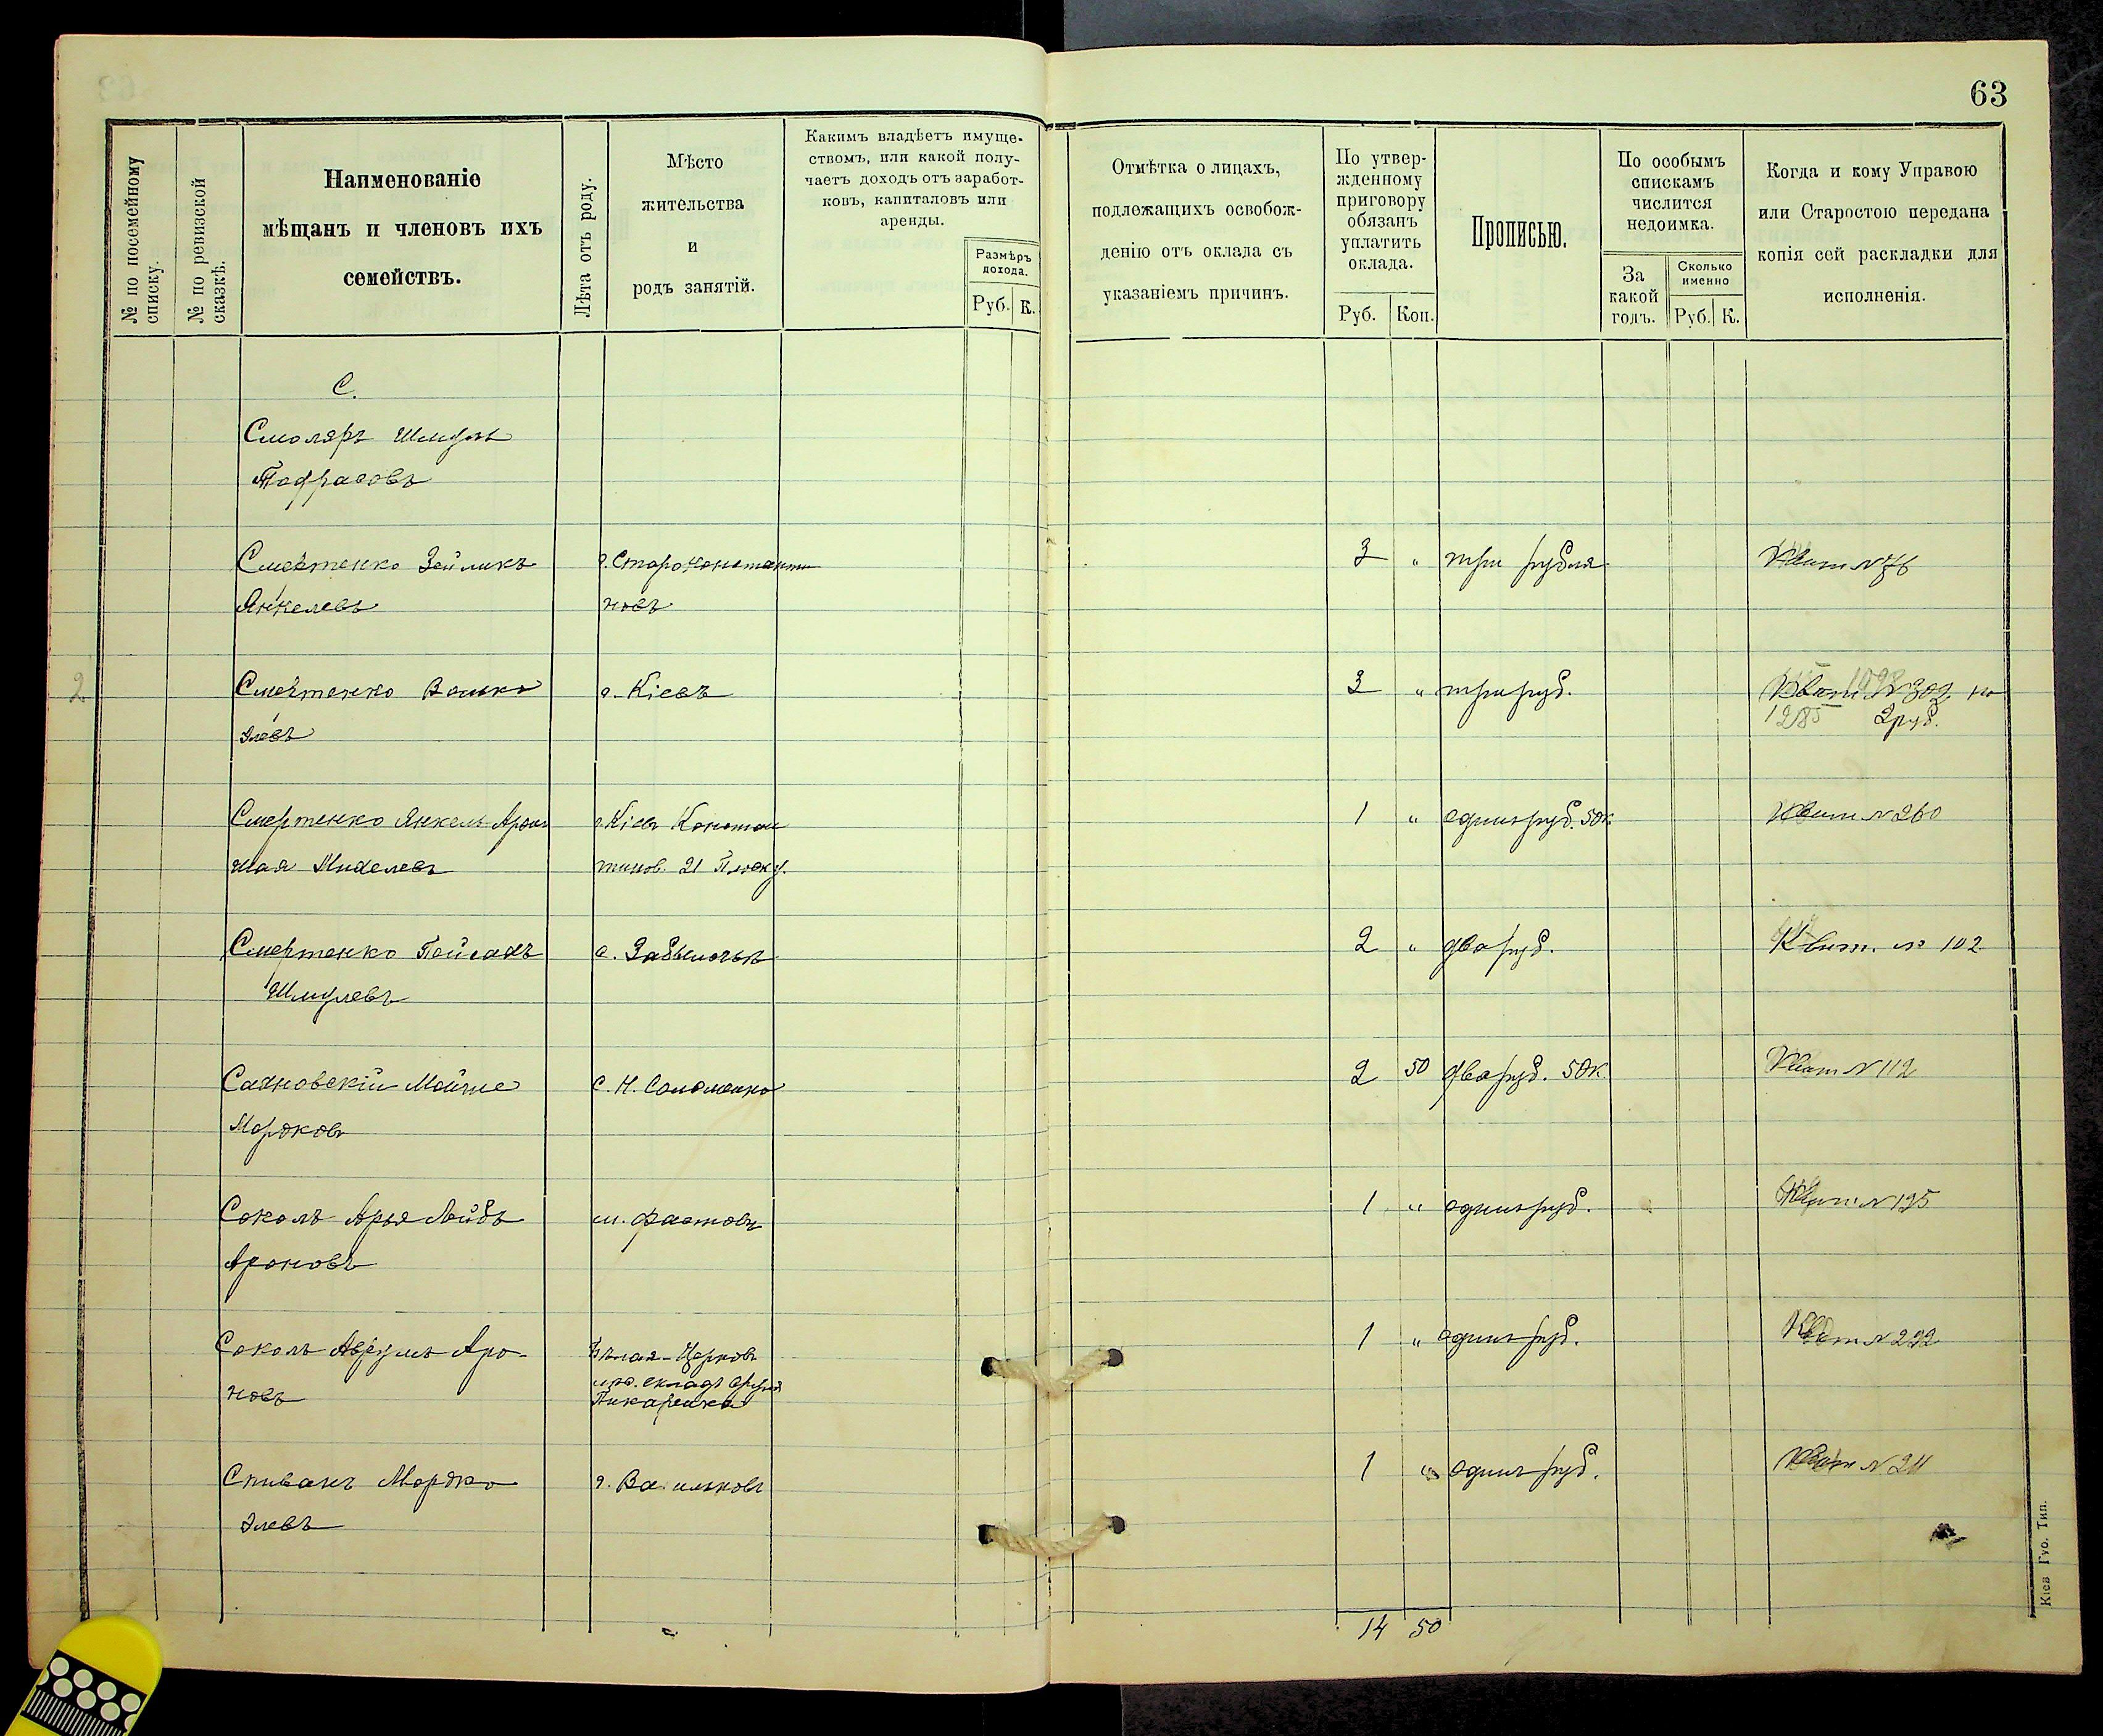 63
№ по посемейному списку.
№ по ревизской сказкѣ.
Наименованіе
мѣщанъ и членовъ ихъ
семействъ.
Лѣта отъ роду.
Мѣсто
жительства
и
родъ занятій.
Какимъ владѣетъ имуще-
ствомъ, или какой полу-
чаетъ доходъ отъ заработ-
ковъ, капиталовъ или
аренды.
Размѣръ
дохода.
Руб. К.
Отмѣтка о лицахъ,
подлежащихъ освобож-
денію отъ оклада съ
указаніемъ причинъ.
По утвер-
жденному
приговору
обязанъ
уплатить
оклада.
Руб. Коп.
Прописью.
По особымъ
спискамъ
числится
недоимка.
За
какой
годъ.
Сколько
именно
Руб. К.
Когда и кому Управою
или Старостою передана
копія сей раскладки для
исполненія.
С.
Смоляръ Шмуль
Смертенко Зейликъ г. Староконстанти 3 " три рубля Квит № 76
Янкелевъ новъ
2 Смертенко Волько г. Кіевъ 3 " три руб. Квит № 302 на
Элевъ 1285 2 руб.
Смертенко Янкель Арон г. Кіевъ Констан 1 " одинъ руб. 50к Квит № 260
Михелевъ тинов. 21
Смертенко Пейсахъ с. 2 " два руб. Квит. № 102
Шмулевъ
Сахновскій Мойше с. Н. Соломенка 2 50 два руб. 50к. Квит № 112
Мордковъ
Соколъ Арья Лейбъ м. Фастовъ 1 " одинъ руб. Квит № 195
Ароновъ
Соколъ Аврумъ Аро- Бѣлая-Церковь 1 " одинъ руб. Квит № 292
новъ складъ
Спивакъ Мордко г. Васильковъ 1 " одинъ руб. Квит № 211
Элевъ
14 50
Кіев Губ. Тип.